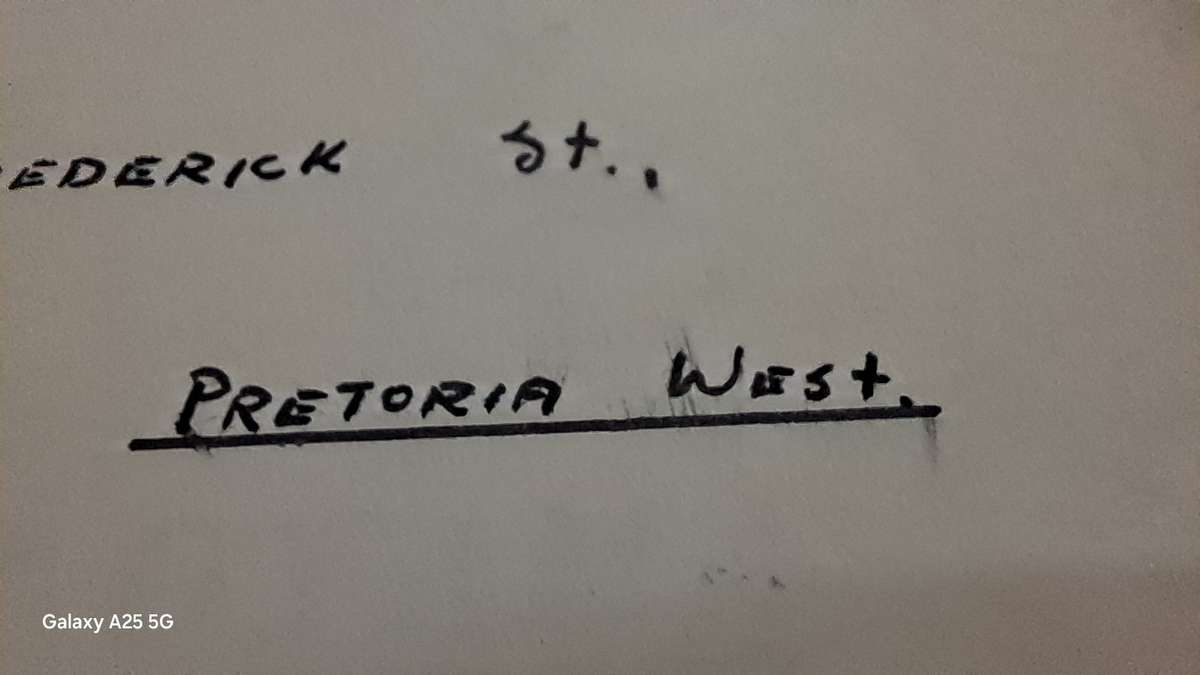 EDERICK St.,
PRETORIA WEST.
Galaxy A25 5G